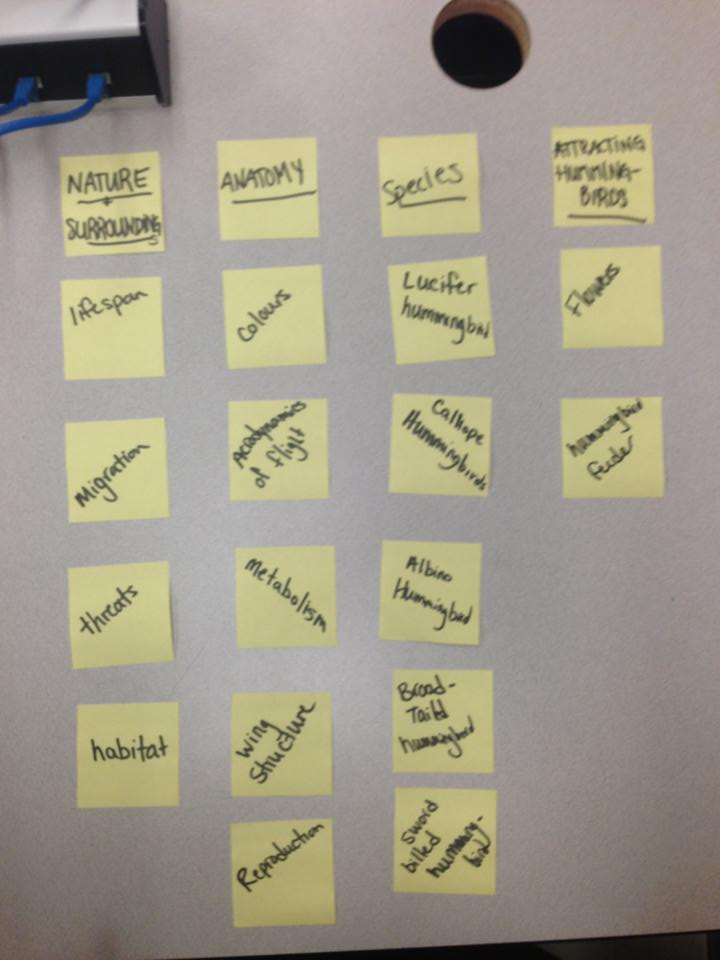 NATURE
+
SURROUNDINGS
lifespan
Migration
threats
habitat
ANATOMY
Colours
Aerodynamics
of flight
Metabolism
wing
structure
Reproduction
Species
Lucifer
hummingbird
Calliope
Hummingbirds
Albino
Hummingbird
Broad-
Tailed
hummingbird
Sword
billed
humming-
bird
ATTRACTING
HUMMING-
BIRDS
Flowers
hummingbird
feeder